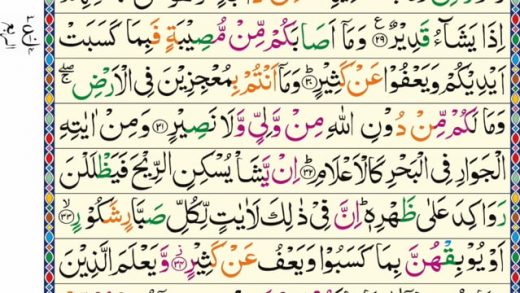 اِذَا يَشَآءُ قَدِيْرٌ ﴿۲۹﴾ وَمَاۤ اَصَابَكُمْ مِّنْ مُّصِيْبَةٍ فَبِمَا كَسَبَتْ
اَيْدِيْكُمْ وَيَعْفُوْا عَنْ كَثِيْرٍ ﴿۳۰﴾ وَمَاۤ اَنْتُمْ بِمُعْجِزِيْنَ فِى الْاَرْضِ
وَمَا لَكُمْ مِّنْ دُوْنِ اللّٰهِ مِنْ وَّلِىٍّ وَّلَا نَصِيْرٍ ﴿۳۱﴾ وَمِنْ اٰيٰتِهِ
الْجَوَارِ فِى الْبَحْرِ كَالْاَعْلَامِ ﴿۳۲﴾ اِنْ يَّشَاْ يُسْكِنِ الرِّيْحَ فَيَظْلَلْنَ
رَوَاكِدَ عَلٰى ظَهْرِهٖ اِنَّ فِىْ ذٰلِكَ لَاٰيٰتٍ لِّكُلِّ صَبَّارٍ شَكُوْرٍ ﴿۳۳﴾
اَوْ يُوْبِقْهُنَّ بِمَا كَسَبُوْا وَيَعْفُ عَنْ كَثِيْرٍ ﴿۳۴﴾ وَّيَعْلَمَ الَّذِيْنَ